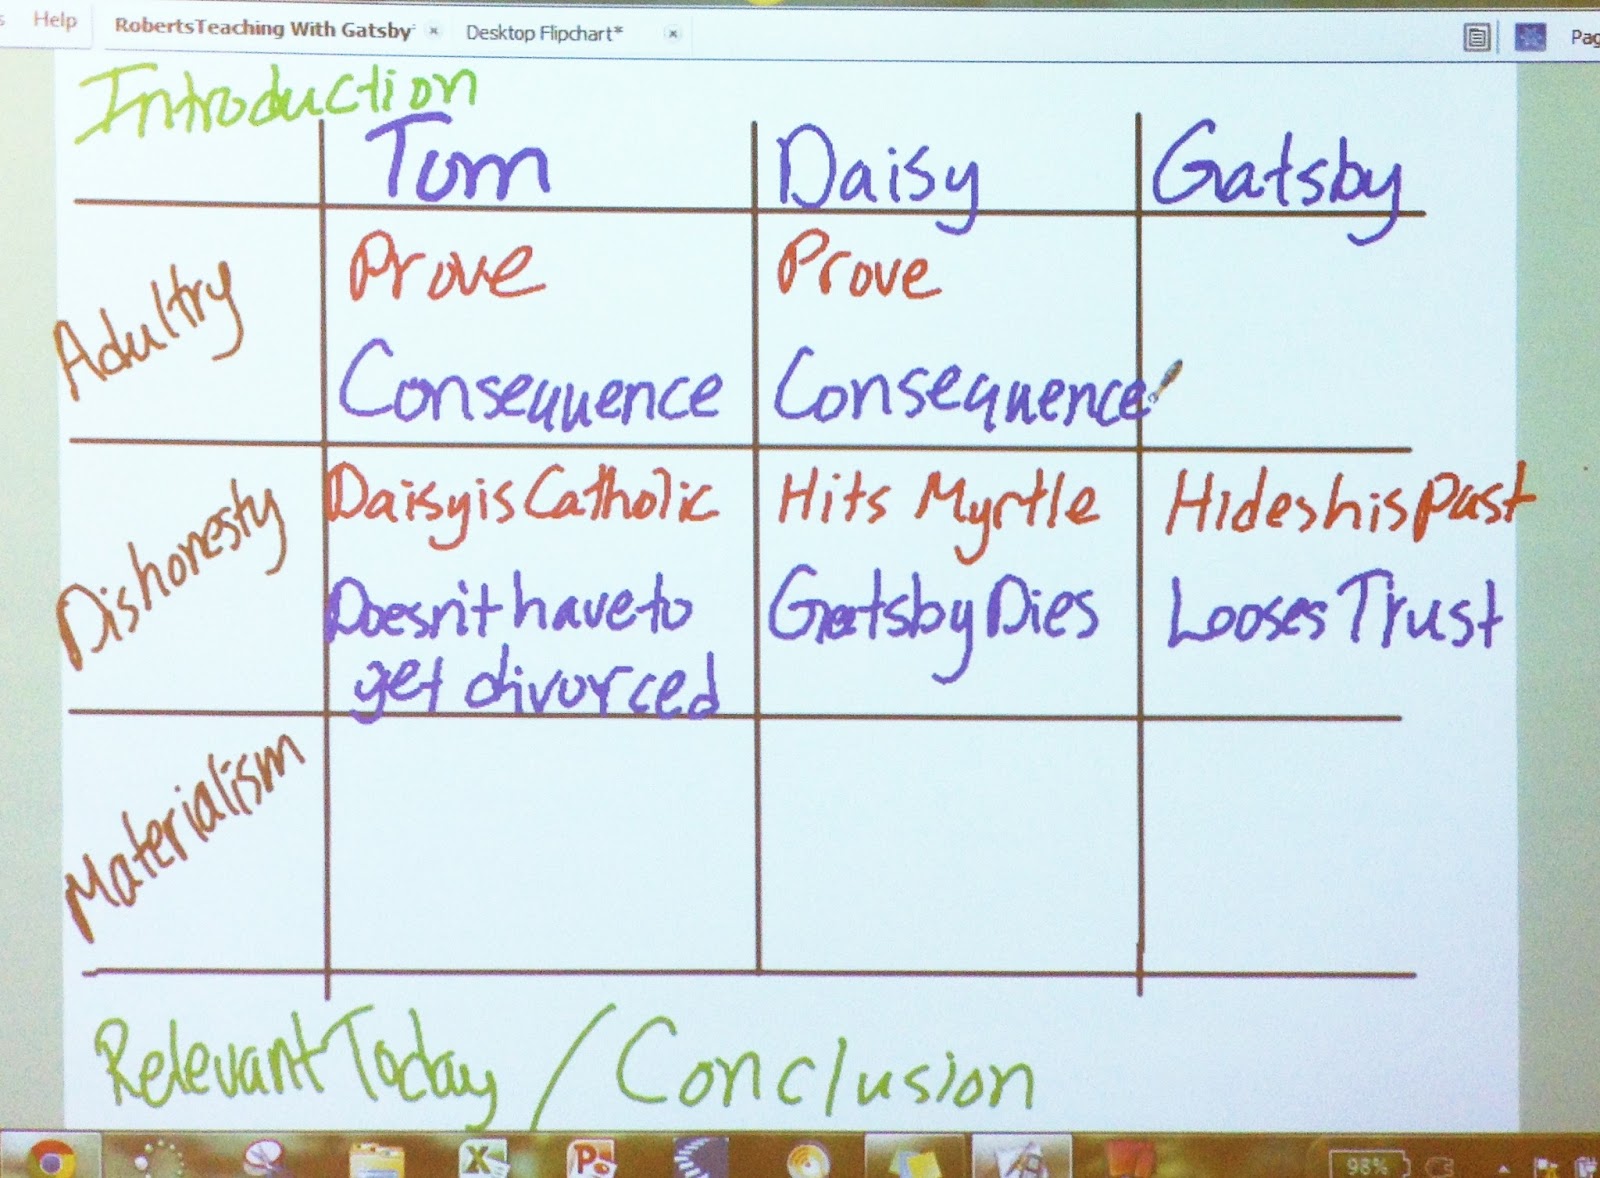 Help RobertsTeaching With Gatsby Desktop Flipchart*
Introduction
Tom Daisy Gatsby
Adultry
Prove Prove
Consequence Consequence
Dishonesty
Daisy is Catholic Hits Myrtle Hides his past
Doesn't have to Gatsby Dies Looses Trust
get divorced
Materialism
Relevant Today / Conclusion
98%